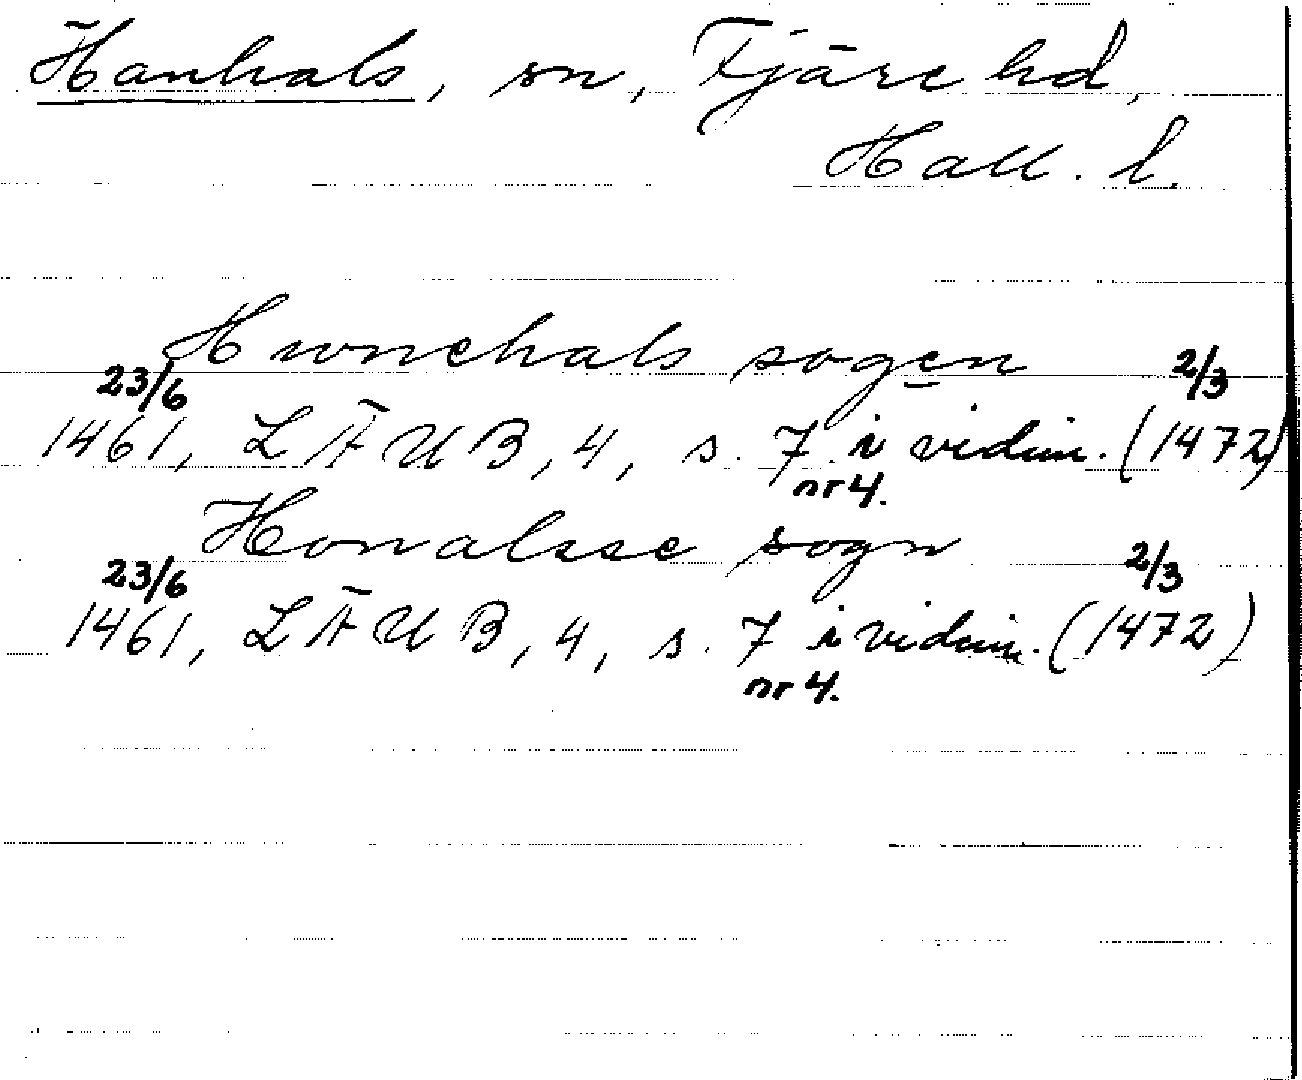 Hanhals, sn, Fjäre hd,
Hall. l.
Hwnehals sogen
23/6 2/3
1461, LÄUB, 4, s. 7 i vidim. (1472)
nr 4.
Honalsse sogn
23/6 2/3
1461, LÄUB, 4, s. 7 i vidim. (1472)
nr 4.